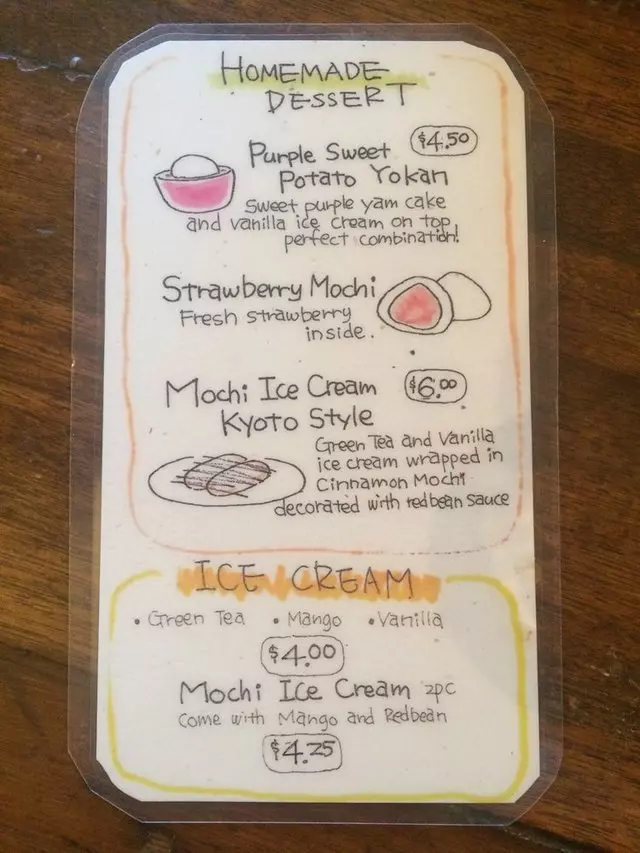 HOMEMADE
DESSERT
$4.50
Purple Sweet
Potato Yokan
Sweet purple yam cake
and vanilla ice cream on top
perfect combination!
Strawberry Mochi
Fresh strawberry
inside.
Mochi Ice Cream $6.00
Kyoto Style
Green Tea and Vanilla
ice cream wrapped in
Cinnamon Mochi
decorated with redbean sauce
ICE CREAM
• Green Tea • Mango • Vanilla
$4.00
Mochi Ice Cream 2pc
Come with Mango and Redbean
$4.25